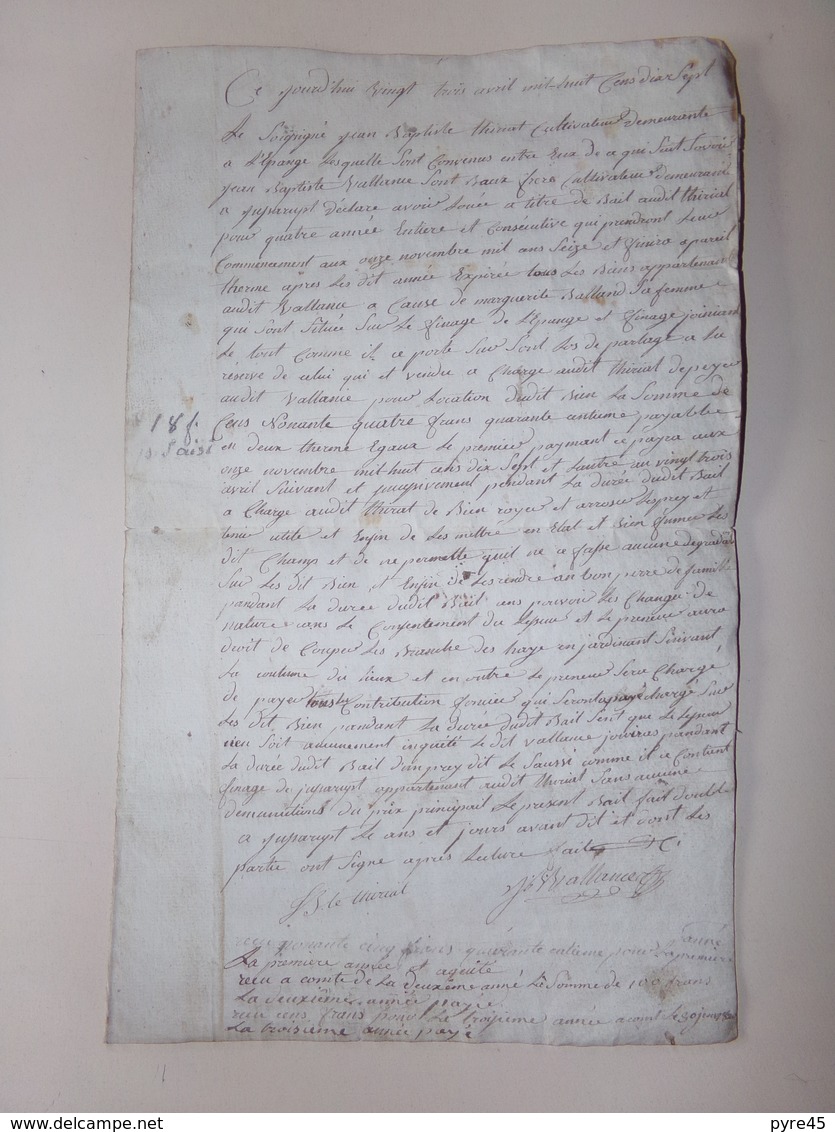 Ce jourd'hui vingt trois avril mil-huit Cens dix Sept
Le Soisigné jean Baptiste thiriat Cultivateur demeurante
a Lépange Lesquelle Sont Convenus entre Eux de ce qui Suit Savoir
jean Baptiste Vallance Sont Baux frere Cultivateur demeurant
a jussarupt déclare avoir Louee a titre de Bail audit thiriat
pour quatre année Entiere et Consécutive qui prendront Leur
Commencement aux onze novembre mil ans Seize et finira apareil
therme apres Les dit année Expirée tous Les Biens appartenant
audit Vallance a Cause de marguerite Balland Sa femme
qui sont Située Sur Le finage de Lépange et finage joiniant
Le tout Comme il ce porte Sur Sont Los de partage a La
reserve de celui qui et vendu a Charge audit thiriat de payer
audit Vallance pour Location dudit Bien La Somme de
Cens Nonante quatre frans quarante centume payable
en deux therme Egaux Le premier payment ce payra aux
onze novembre mil-huit ans dix Sept et Lautre au vingt trois
avril Suivant et pendant La durée dudit Bail
a Charge audit thiriat de Bien royer et arroser Les prey et
tenir utile et Enfin de Les mettre en Etat et Bien fumer Les
dit Champs et de ne permettre quil ne ce fasse aucune degradation
Sur Les dit Bien et Enfin de Les rendre an bon perre de famille
pandant La durée dudit Bail ans pouvoir Les Changer de
nature sans Le Consentement du et Le preneur aura
droit de Couper Les Branche des haye en jardinant Suivant
La coutume du Lieux et en outre Le preneur Sera Chargé
de payer tous Les Contribution foncier qui Seront Chargé Sur
Les dit Bien pandant La durée dudit Bail Sent que Le
rien Soit aucunement inquiété Le dit Vallance jouiras pandant
La durée dudit Bail d'un pray dit Le Saussi comme il ce Contient
finage de jussarupt appartenant audit thiriat Sans aucune
du prix principail Le present Bail fait double
a jussarupt Le ans et jours avant dit et dont Les
partie ont Signe après Lecture faite
18 f.
J B te thiriat
JB Vallance
reçu nonante cinq frans quarante centieme pour
La premiere année et aquité
reçu a comte de La deuxéme anné Le Somme de 100 frans
La deuxième année payée
reçu cens frans pour Le troisieme année acomt Le 30
La troisième année payé
Delcampe.net
pyre45